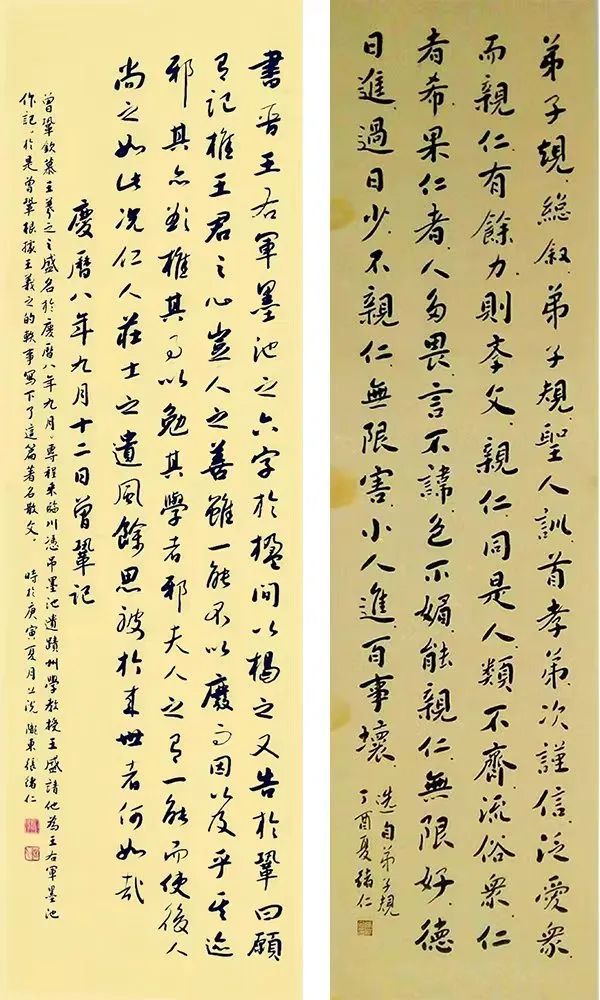 書晉王右軍墨池之六字於楹間以揭之又告於鞏曰願
有記推王君之心豈人之善雖一能不以廢而因以及乎其跡
邪其亦欲推其事以勉其學者邪夫人之有一能而使後人
尚之如此況仁人莊士之遺風餘思被於來世者何如哉
慶曆八年九月十二日曾鞏記
曾鞏欽慕王羲之之盛名於慶曆八年九月，專程來臨川憑吊墨池遺蹟州學教授王盛請他為王右軍墨池
作記，於是曾鞏根據王羲之的軼事寫下了這篇著名散文。時於庚寅夏月上浣隴東張緒仁
弟子規總敘弟子規聖人訓首孝弟次謹信泛愛眾
而親仁有餘力則學文親仁同是人類不齊流俗眾仁
者希果仁者人多畏言不諱色不媚能親仁無限好德
日進過日少不親仁無限害小人進百事壞
選自弟子規
丁酉夏緒仁